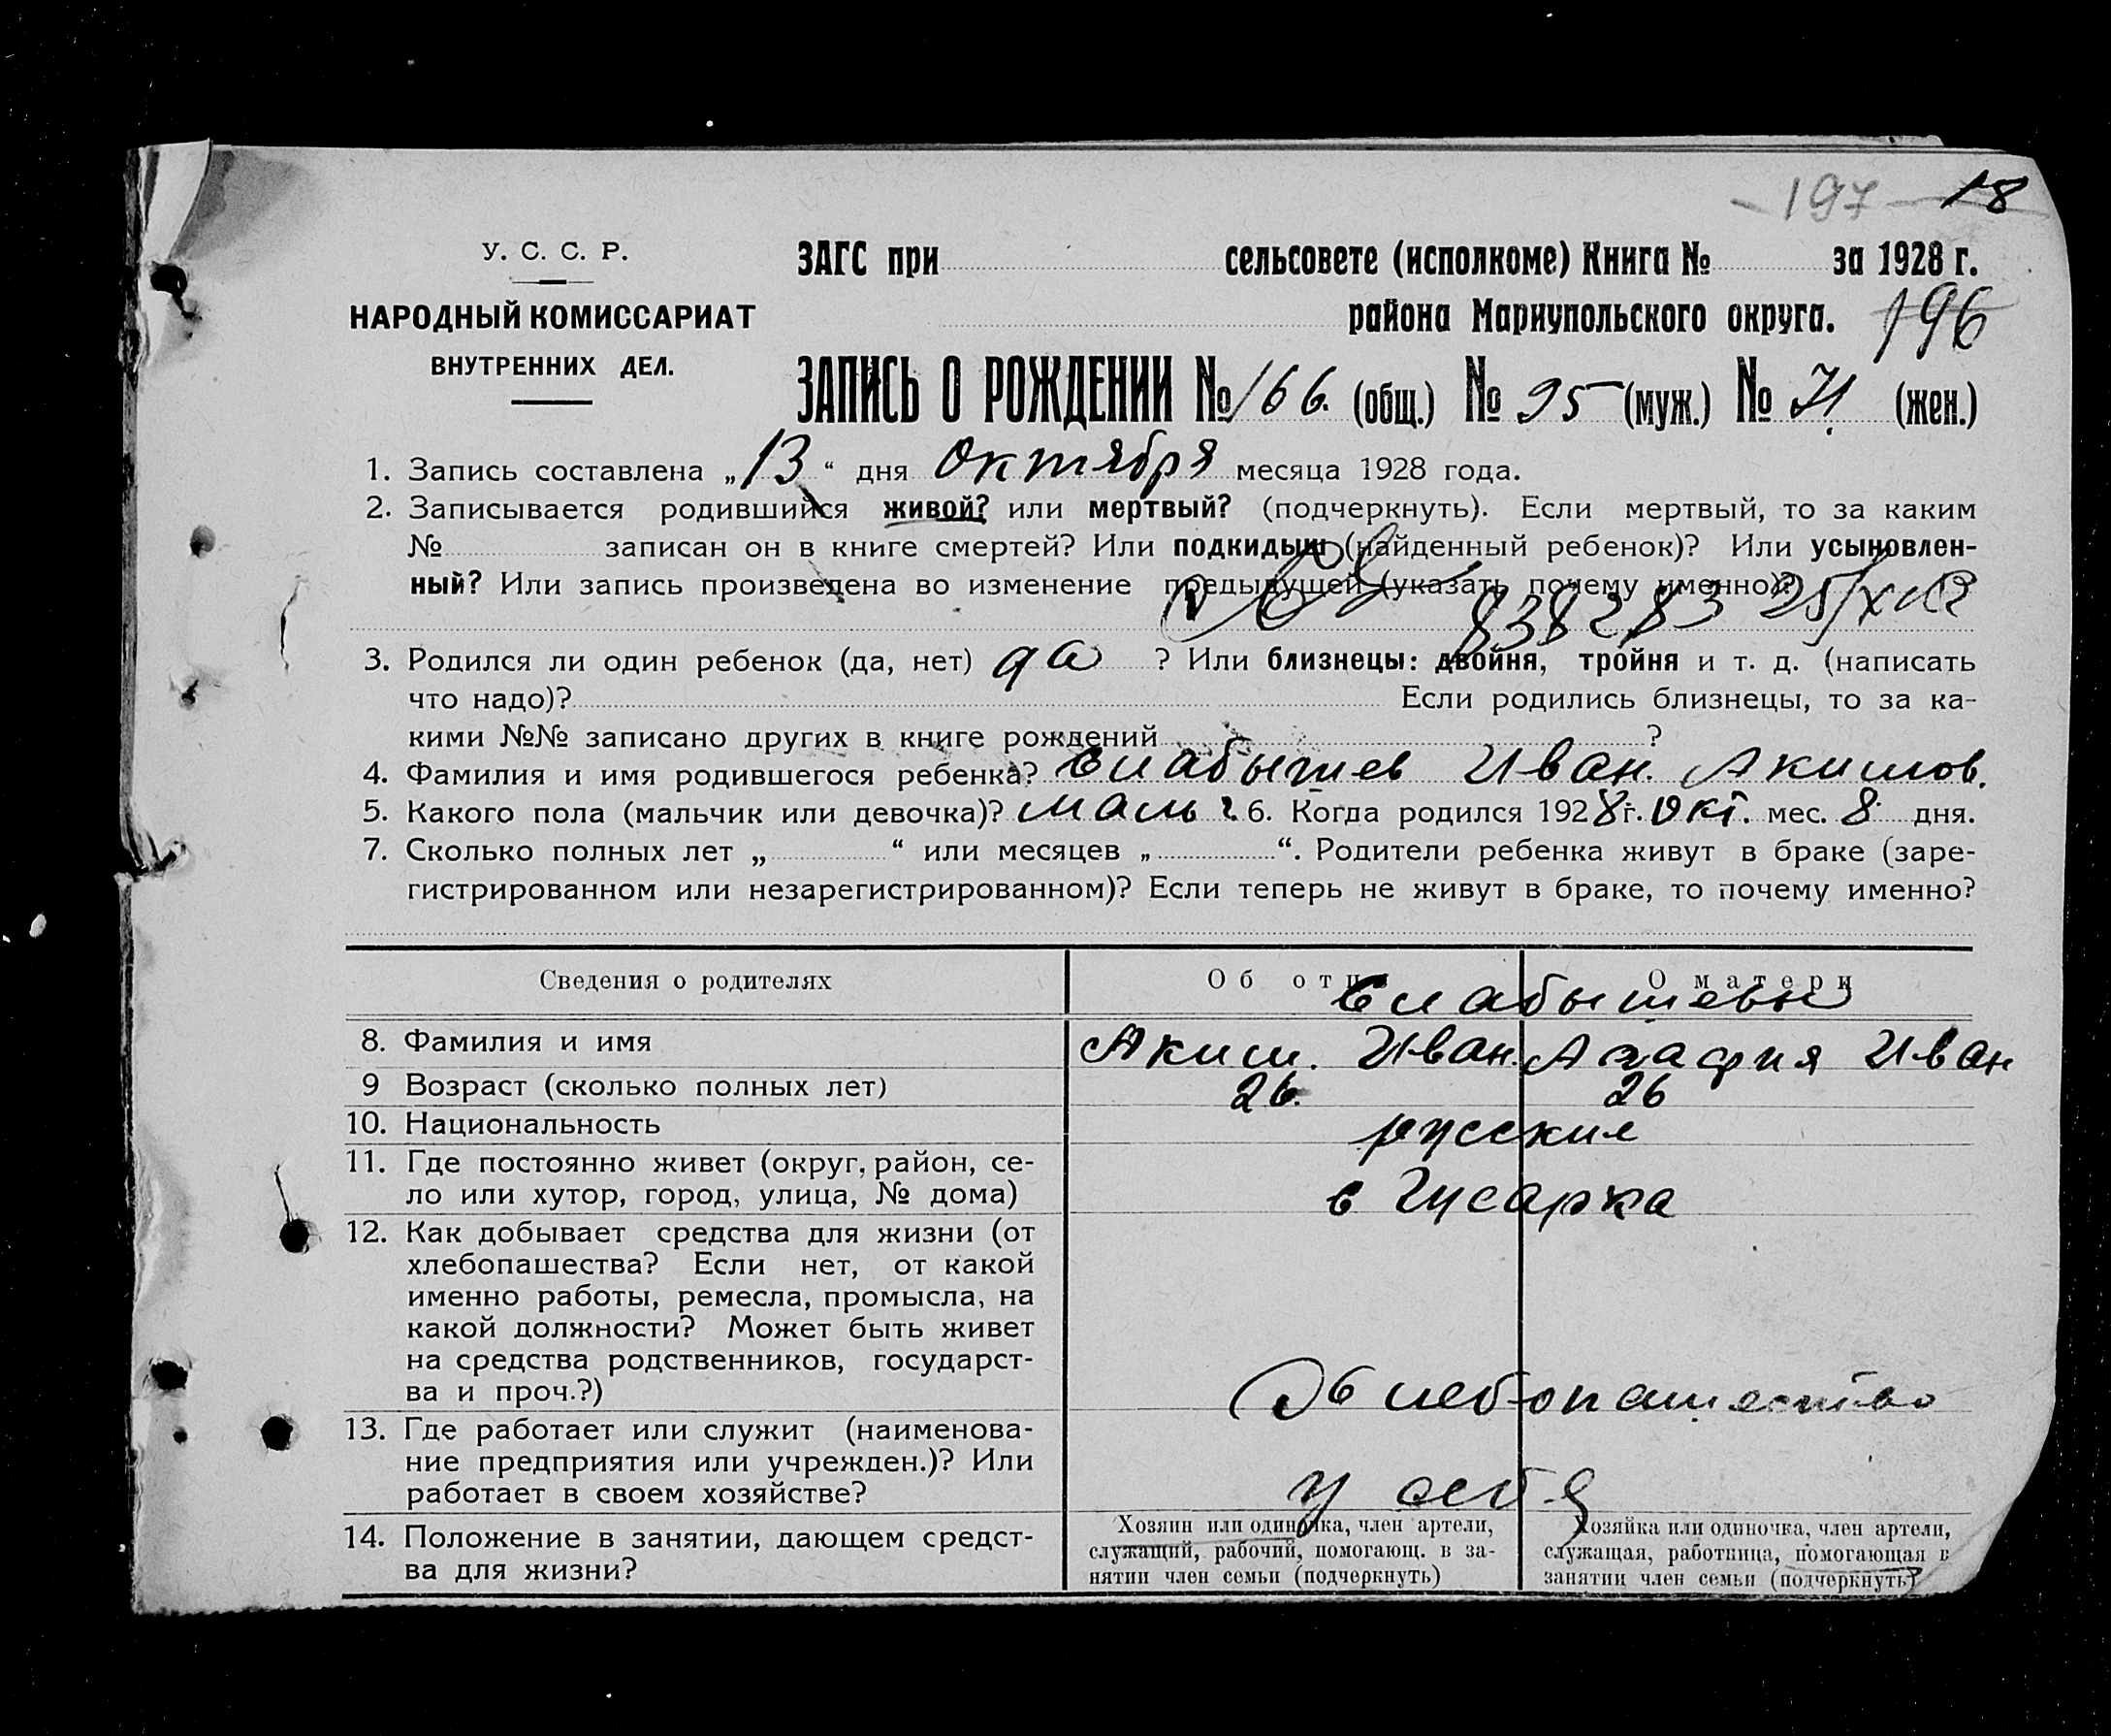 197 18
У. С. С. Р.
ЗАГС при сельсовете (исполкоме) Книга № за 1928 г.
НАРОДНЫЙ КОМИССАРИАТ
района Мариупольского округа.
196
ВНУТРЕННИХ ДЕЛ.
ЗАПИСЬ О РОЖДЕНИИ № 166. (общ.) № 95 (муж.) № 71 (жен.)
1. Запись составлена „13“ дня Октября месяца 1928 года.
2. Записывается родившийся живой? или мертвый? (подчеркнуть). Если мертвый, то за каким
№ записан он в книге смертей? Или подкидыш (найденный ребенок)? Или усыновлен-
ный? Или запись произведена во изменение предыдущей (указать почему именно)?
3. Родился ли один ребенок (да, нет) да ? Или близнецы: двойня, тройня и т. д. (написать
что надо)? Если родились близнецы, то за ка-
кими №№ записано других в книге рождений ?
4. Фамилия и имя родившегося ребенка? Слабышев Иван. Акимов.
5. Какого пола (мальчик или девочка)? мальч. 6. Когда родился 1928 г. Окт. мес. 8 дня.
7. Сколько полных лет „ “ или месяцев „ “. Родители ребенка живут в браке (заре-
гистрированном или незарегистрированном)? Если теперь не живут в браке, то почему именно?
Сведения о родителях Об отце О матери
Слабышевы
8. Фамилия и имя Аким. Иван. Агафия Иван
9 Возраст (сколько полных лет) 26. 26
10. Национальность русские
11. Где постоянно живет (округ, район, се-
ло или хутор, город, улица, № дома) с Гусарка
12. Как добывает средства для жизни (от
хлебопашества? Если нет, от какой
именно работы, ремесла, промысла, на
какой должности? Может быть живет
на средства родственников, государст-
ва и проч.?) хлебопашество
13. Где работает или служит (наименова-
ние предприятия или учрежден.)? Или
работает в своем хозяйстве? у себя
14. Положение в занятии, дающем средст-
ва для жизни?
Хозяин или одиночка, член артели,
служащий, рабочий, помогающ. в за-
нятии член семьи (подчеркнуть)
Хозяйка или одиночка, член артели,
служащая, работница, помогающая в
занятии член семьи (подчеркнуть)